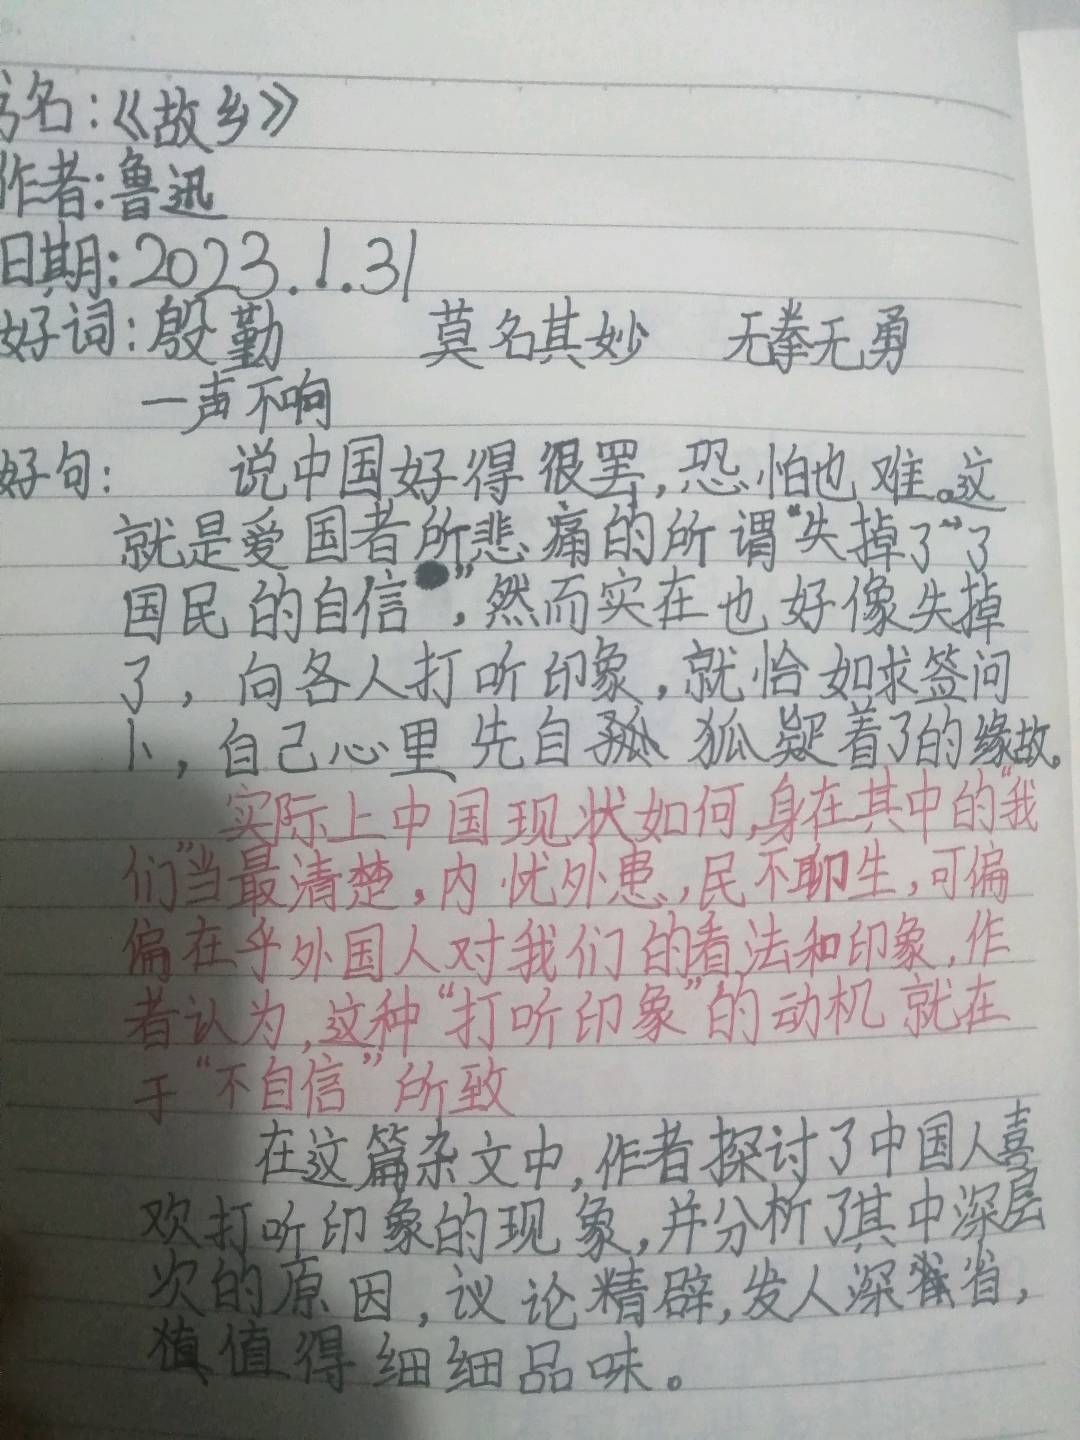 书名:《故乡》
作者:鲁迅
日期:2023.1.31
好词:殷勤 莫名其妙 无拳无勇
一声不响
好句: 说中国好得很罢,恐怕也难。这
就是爱国者所悲痛的所谓“失掉了”了
国民的自信”,然而实在也好像失掉
了,向各人打听印象,就恰如求签问
卜,自己心里先自狐疑着了的缘故。
实际上中国现状如何,身在其中的“我
们”当最清楚,内忧外患,民不聊生,可偏
偏在乎外国人对我们的看法和印象,作
者认为,这种“打听印象”的动机就在
于“不自信”所致
在这篇杂文中,作者探讨了中国人喜
欢打听印象的现象,并分析了其中深层
次的原因,议论精辟,发人深省,
值得细细品味。